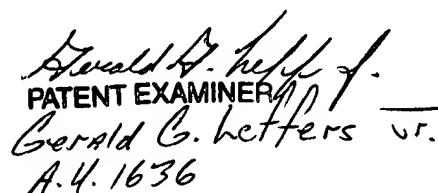 Gerald G. Leff Jr.
PATENT EXAMINER
Gerald G. Leffers Jr.
A.U. 1636